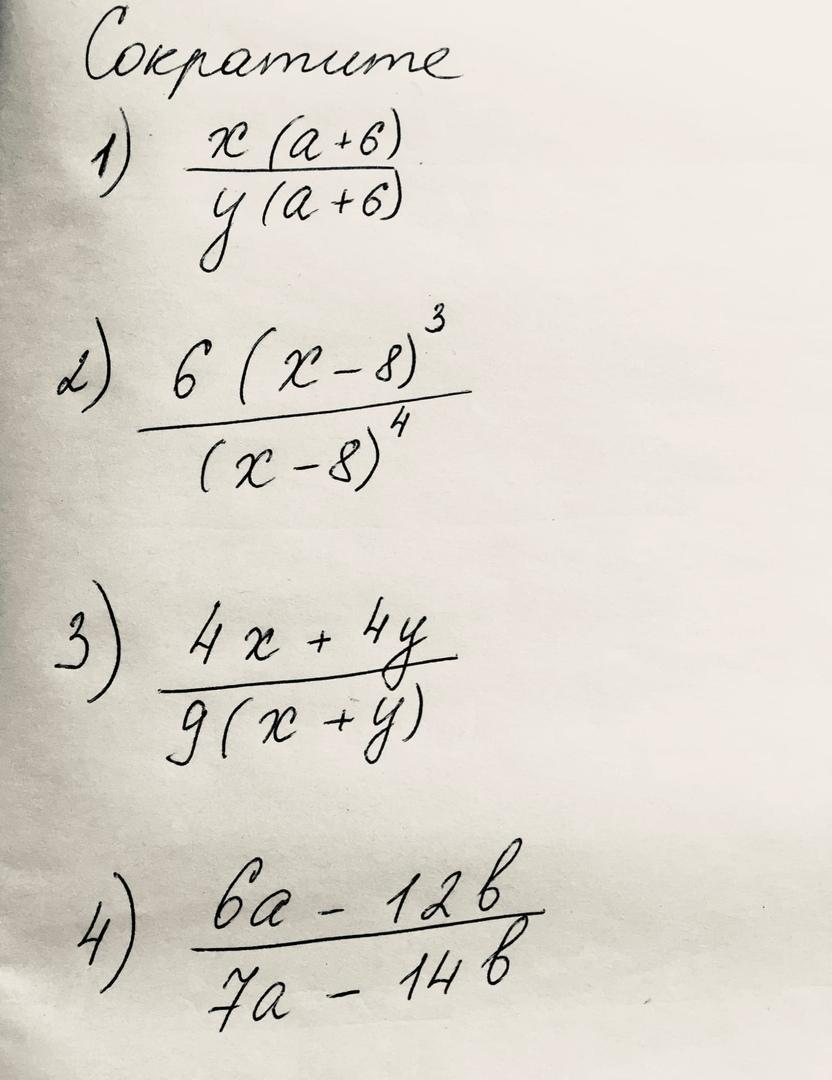 Сократите
1) x (a+6)
y (a+6)
2) 6 (x-8)³
(x-8)⁴
3) 4x + 4y
9(x+y)
4) 6a - 12b
7a - 14b